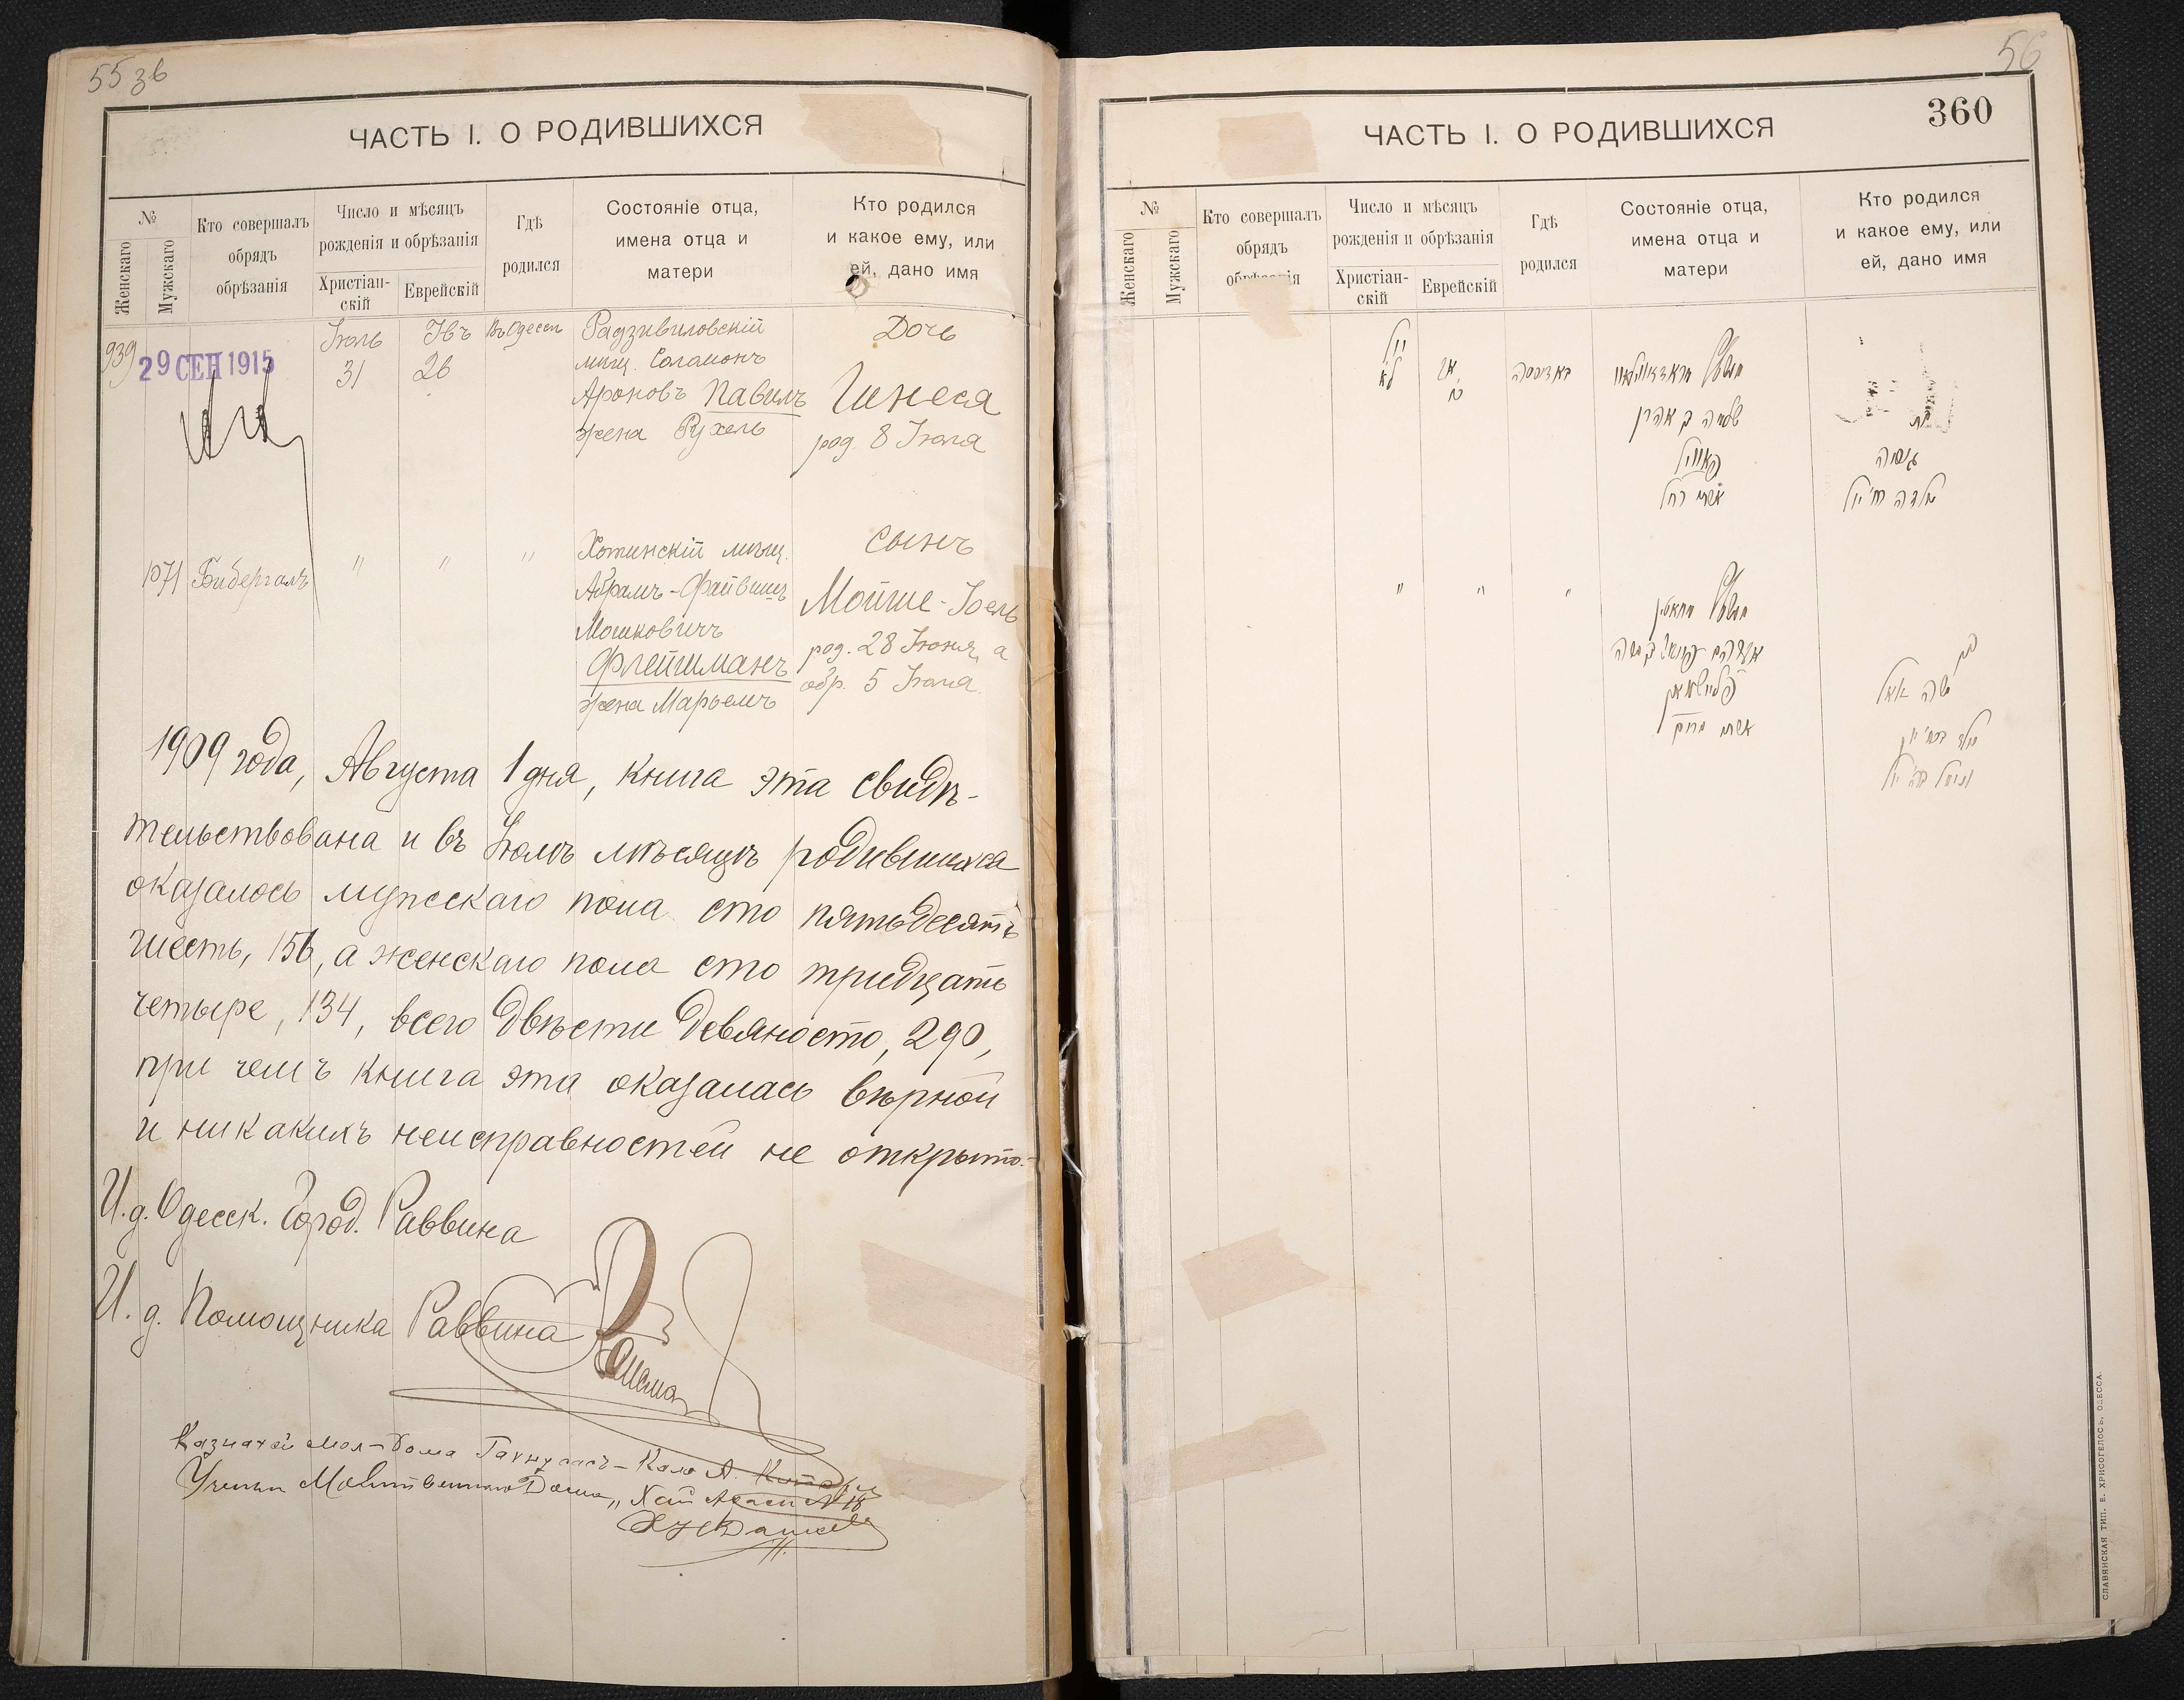 55 зв
ЧАСТЬ I. О РОДИВШИХСЯ
№
Женскаго
Мужскаго
Кто совершалъ
обрядъ
обрѣзанія
Число и мѣсяцъ
рожденія и обрѣзанія
Христіан-
скій
Еврейскій
Гдѣ
родился
Состояніе отца,
имена отца и
матери
Кто родился
и какое ему, или
ей, дано имя
939
29 СЕН 1915
Іюль
31
Овъ
26
Въ Одессѣ
Радзивиловскій
мѣщ. Соломонъ
Ароновъ Павилъ
жена Рухель
Дочь
Гинеся
род. 8 Іюля
1071
Бибергалъ
"
"
"
Хотинскій мѣщ.
Абрамъ-Файвишъ
Мошковичъ
Флейшманъ
жена Марьемъ
Сынъ
Мойше-Іоель
род. 28 Іюня, а
обр. 5 Іюля.
1909 года, Августа 1 дня, книга эта свидѣ-
тельствована и въ Іюлѣ мѣсяцѣ родившихся
оказалось мужескаго пола сто пятьдесятъ
шесть, 156, а женскаго пола сто тридцать
четыре, 134, всего двѣсти девяносто, 290,
при чемъ книга эта оказалась вѣрной
и никакихъ неисправностей не открыто.
И. д. Одесск. Город. Раввина
И. д. Помощника Раввина
Казначей Мол-Дома
Молитвеннаго Дома
56
360
ЧАСТЬ I. О РОДИВШИХСЯ
№
Женскаго
Мужскаго
Кто совершалъ
обрядъ
Число и мѣсяцъ
рожденія и обрѣзанія
Христіан-
скій
Еврейскій
Гдѣ
родился
Состояніе отца,
имена отца и
матери
Кто родился
и какое ему, или
ей, дано имя
יול
לא
אב
באדעססה
שלמה ב אהרן
פאוויל
אשתו רחל
בת
גינסיה
נולדה ח' יול
"
"
"
פליישמאן
אשתו מרים
בן
משה יואל
СЛАВЯНСКАЯ ТИП. Е. ХРИСОГЕЛОСЪ, ОДЕССА.